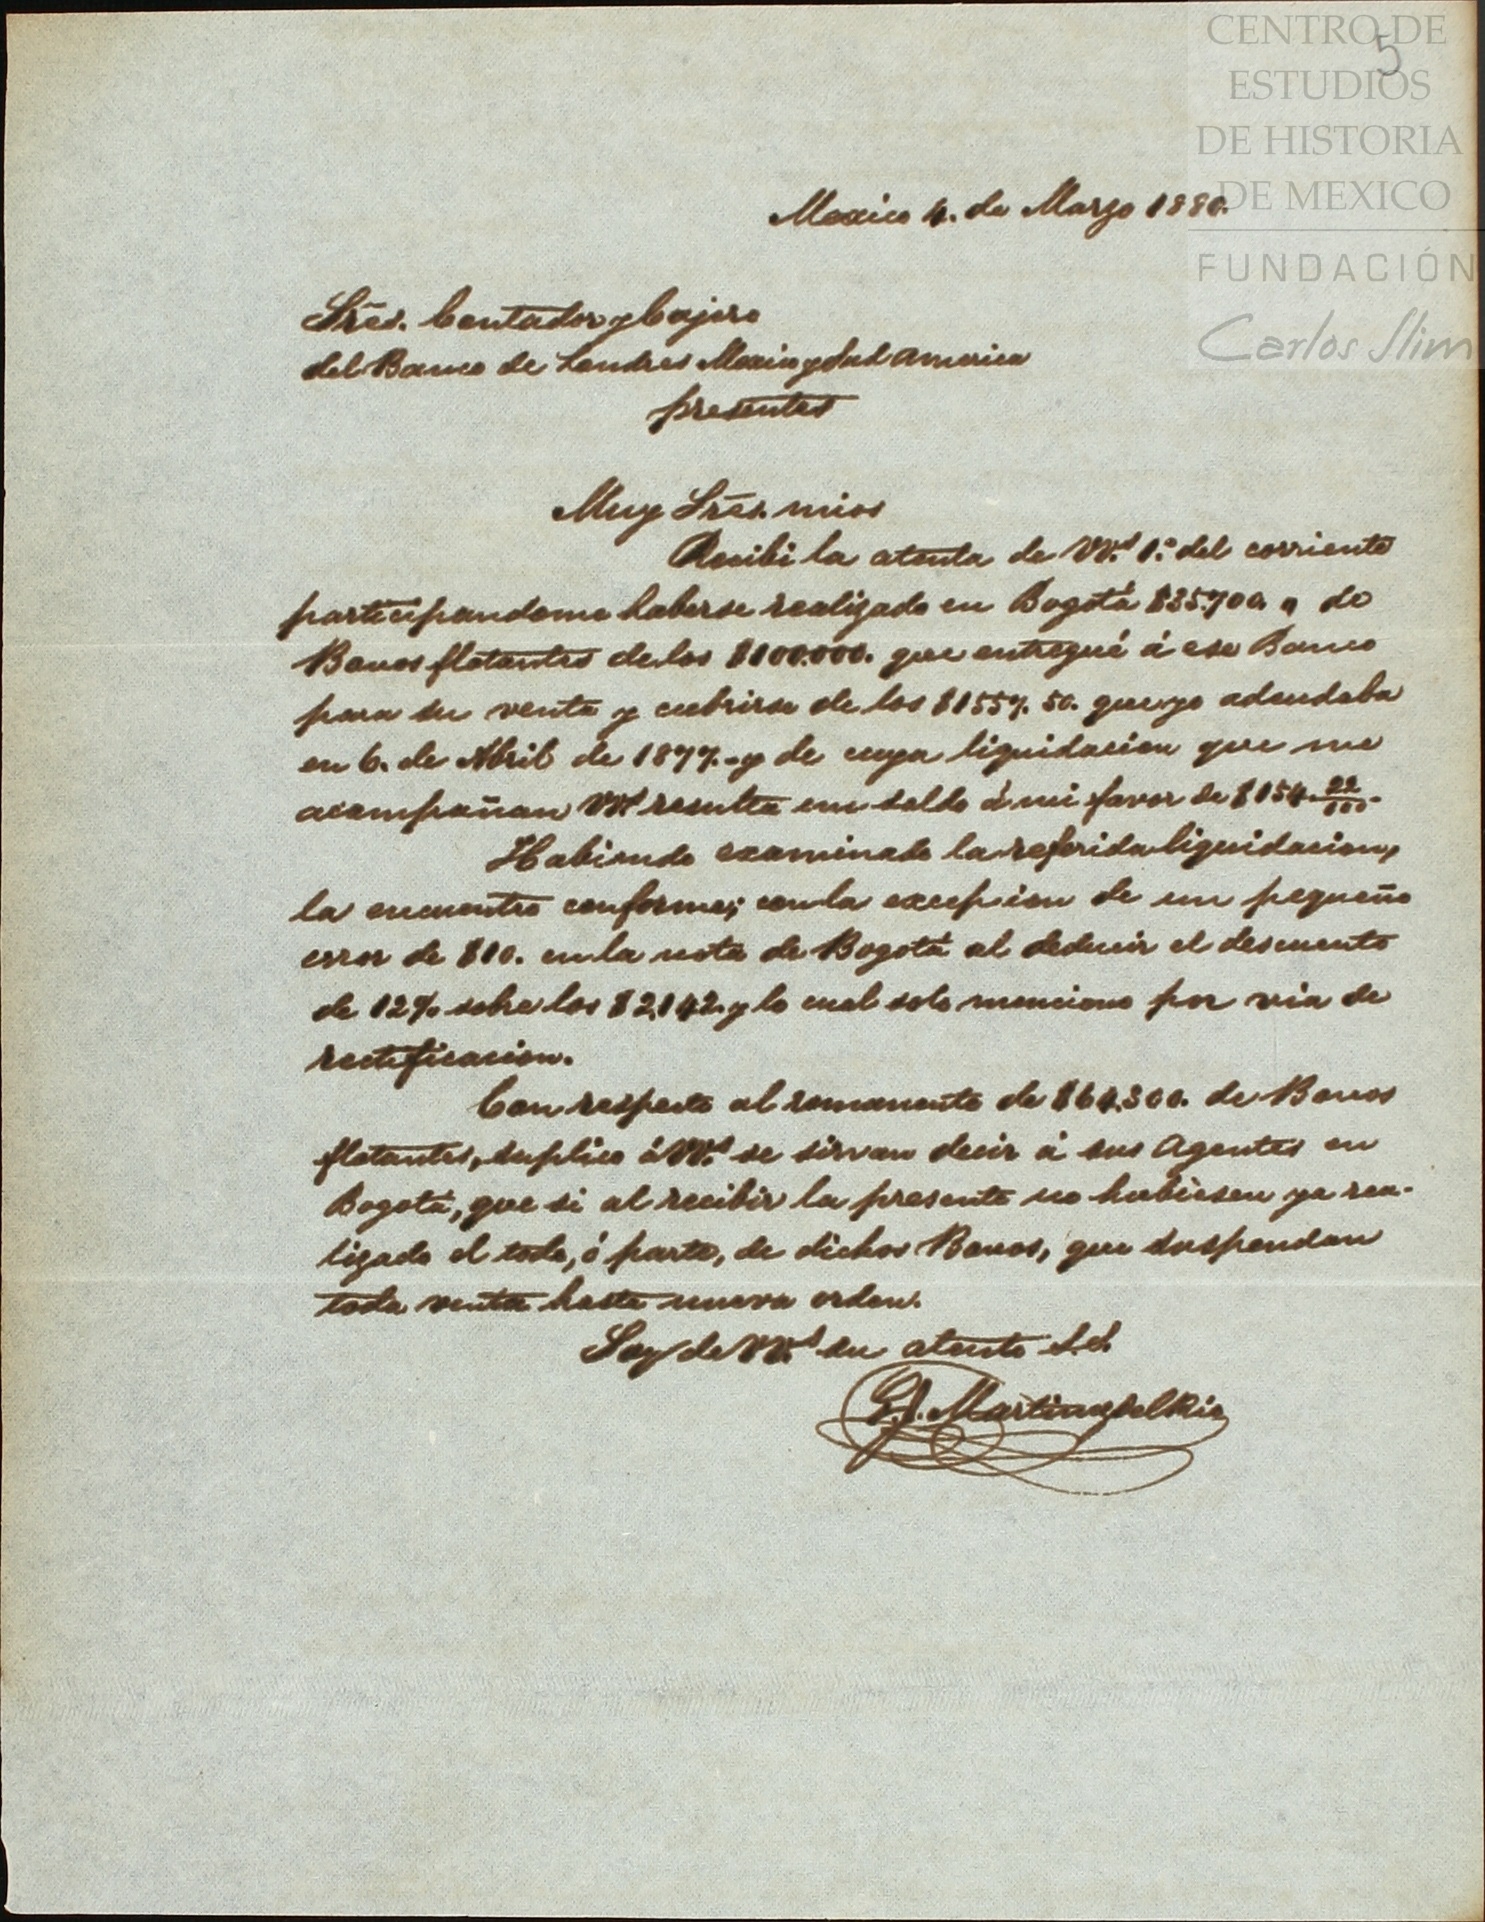 CENTRO DE
ESTUDIOS
DE HISTORIA
DE MEXICO
FUNDACIÓN
Carlos Slim
5
Mexico 4. de Marzo 1880.
Sres. Contador y Cajero
del Banco de Londres Mexico y Sud America
presentes
Muy Sres. mios
Recibi la atenta de VV.s 1.º del corriente
participandome haberse realizado en Bogotá $35.700. de
Bonos flotantes de los $100.000. que entregué á ese Banco
para su venta y cubrirse de los $1557. 50. que yo adeudaba
en 6. de Abril de 1877. y de cuya liquidacion que me
acompañan VV.s resulta un saldo á mi favor de $154. 22/100.
Habiendo examinado la referida liquidacion,
la encuentro conforme; con la excepcion de un pequeño
error de $10. en la nota de Bogotá al deducir el descuento
de 12% sobre los $2,142. y lo cual solo menciono por via de
rectificacion.
Con respecto al remanente de $64.300. de Bonos
flotantes, suplico á VV.s se sirvan decir á sus Agentes en
Bogotá, que si al recibir la presente no hubiesen ya rea-
lizado el todo, ó parte, de dichos Bonos, que suspendan
toda venta hasta nueva orden.
Soy de VV.s su atento S.S.
Martinez del Rio